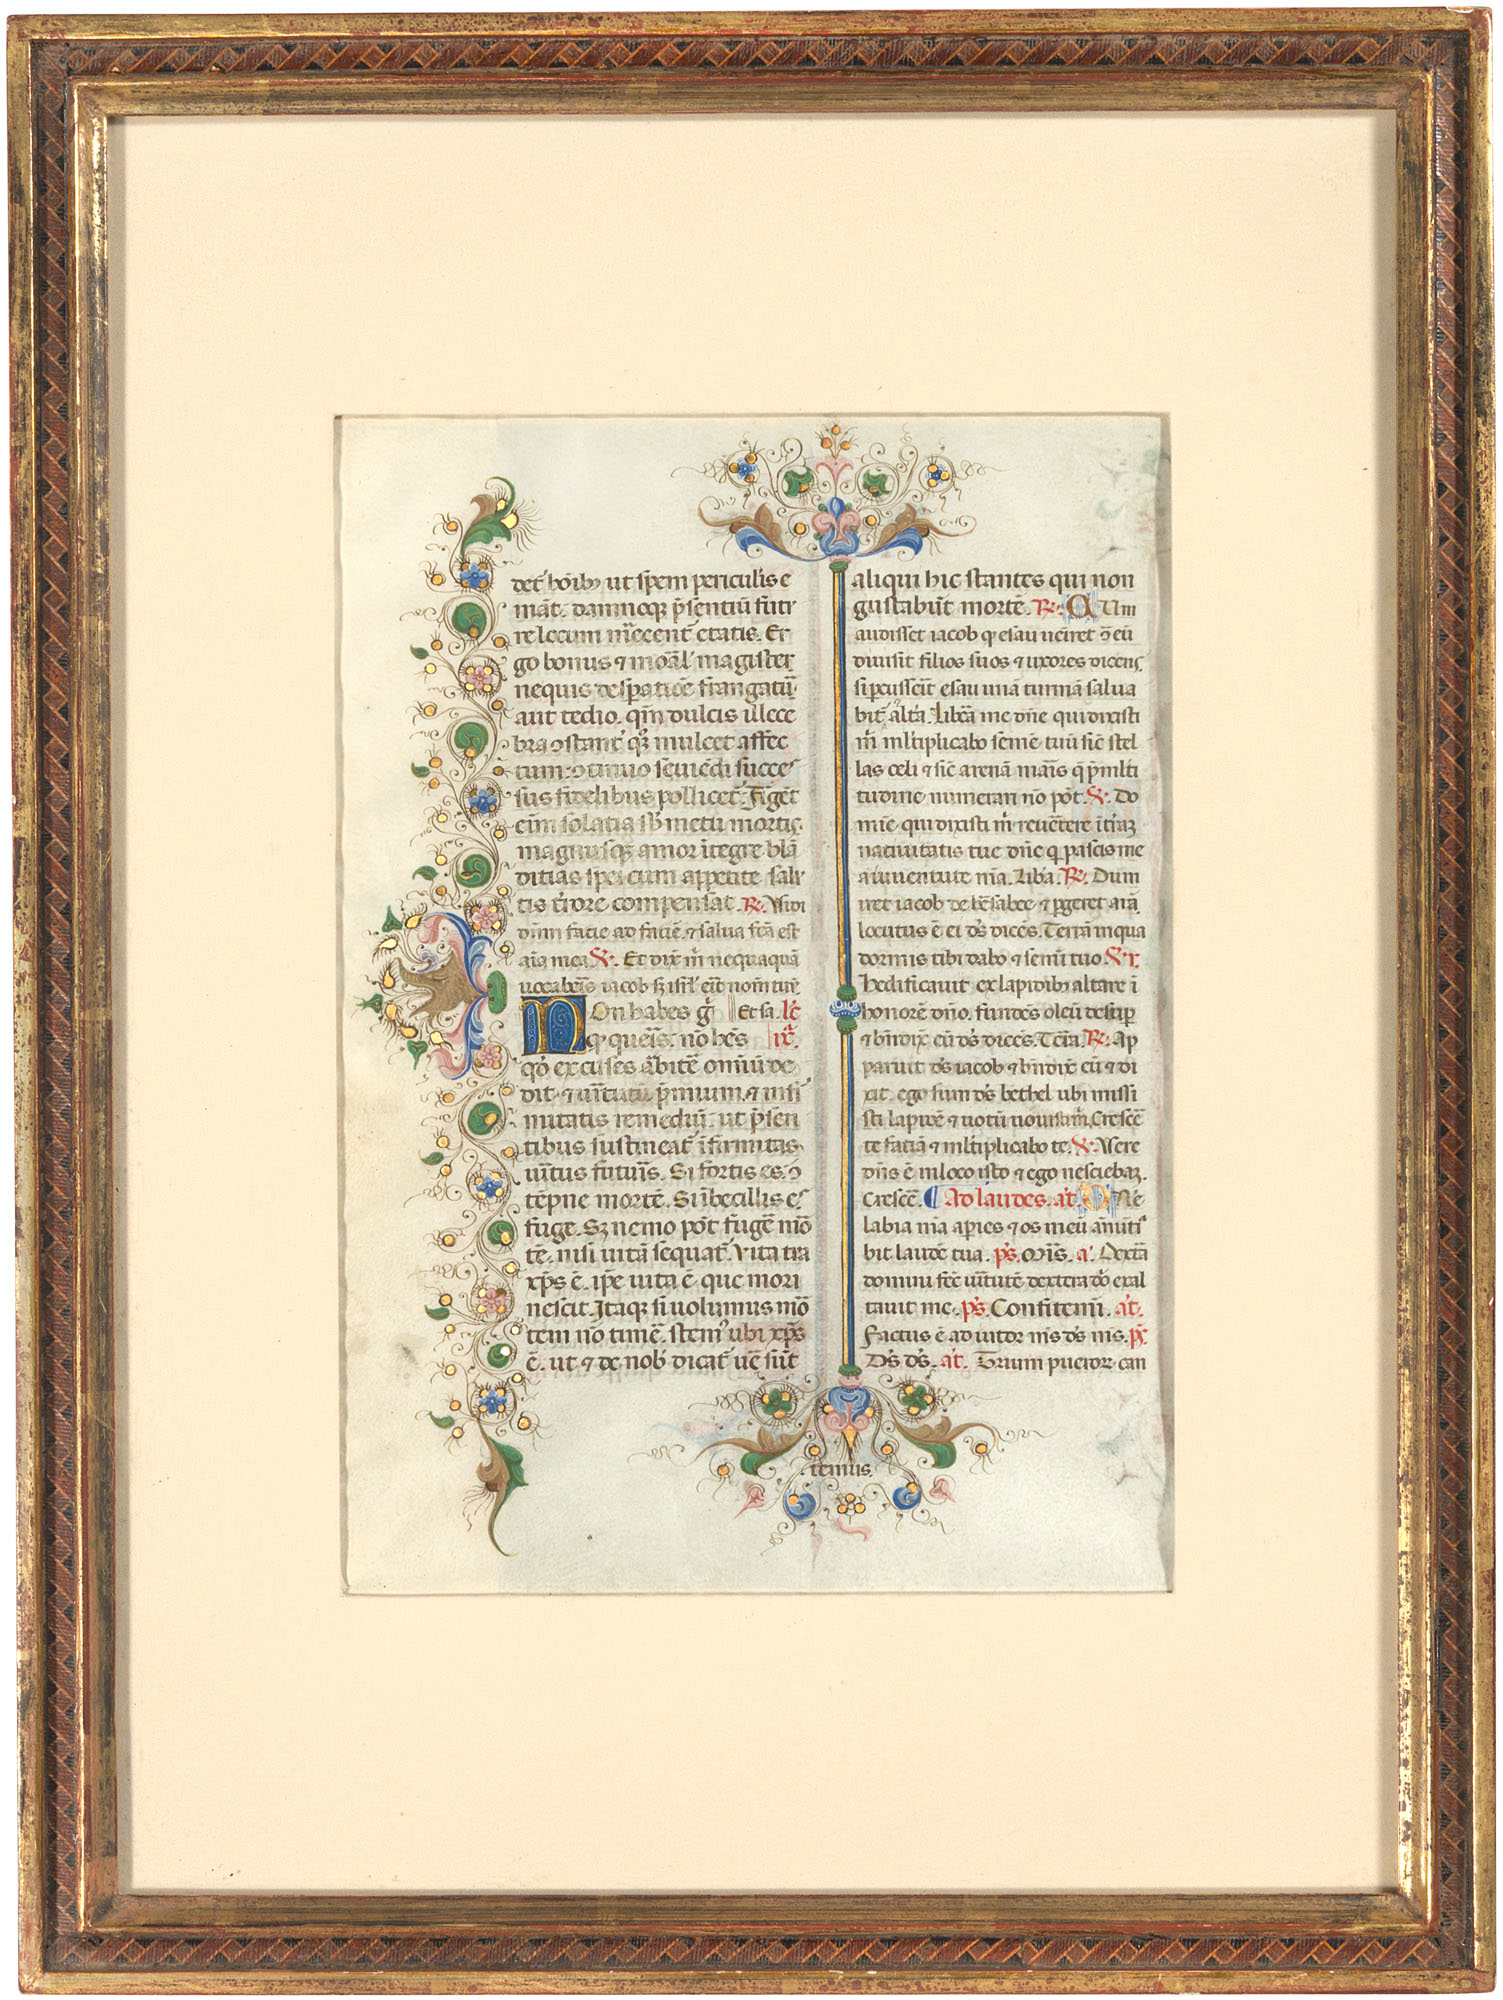 det hoīb₉ ut spem periculis e
māt. damnoqȝ p̄sentiū futu
re locum m̄ecent̄ etatis. Er
go bonus ⁊ moāl' magister
nequis despatiōe frangatū
aut tedio. qm̄ dulcis illece
bra ꝯstant' q̄ȝ mulcet affec
tum: ꝯtinuo seviēdi succe
sus fidelibus pollicet̄. Figet
eīm solatia sb̄ metu mortis.
magnusqȝ amor ītegre blā
ditias spei cum appetite salu
tis t̄rore compensat. R̄. Vidi
dn̄m facie ad faciē. ⁊ salua fc̄a est
aīa mea. V̄. Et dix̄ m̄ nequaquā
vocabēis iacob sȝ isr̄l ēit nom̄ tuū
NOn habes g̊ Et sa. lc̄
qȝ queris. nō hēs ix̄.
qd̊ excuses ābitē omiū de
dit. ⁊ ūtutū p̄mium. ⁊ infi
mitatis remediū. ut p̄sen
tibus sustineat̄ īfirmitas
ūtus futuris. Si fortis es. ꝯ
tēpne mortē. Si ībecillis es
fuge. Sȝ nemo pōt fugē mō
tē. nisi uitā sequat̄. Vita tua
xp̄s ē. ip̄e uita ē que mori
nescit. Itaqȝ si uolumus mō
tem nō timē. stem' ubi xp̄s
ē. ut ⁊ de nob' dicat̄ ue sūt
aliqui hic stantes qui non
gustabūt mortē. R̄. CUm
audisset iacob qȝ esau ueniret ꝯ eū
diuisit filios suos ⁊ uxores dicens
si pcusserit esau unā turmā salua
bit̄ alt̄a. Libēa me dn̄e qui dixisti
m̄ ml̄tiplicabo semē tuū sic̄ stel
las celi ⁊ sic̄ arenā maīs q̄ p̄ ml̄ti
tudine numerari nō pōt. V̄. Do
mīe qui dixisti m̄ reuētere ī t̄rāȝ
natiuitatis tue dn̄e q̄ pascis me
a iuuentute m̄a. Libā. R̄. Dum
iret iacob de bēsabee ⁊ p̄geret arā
locutus ē ei ds̄ dicēs. Terrā in qua
dormis tibi dabo ⁊ semī tuo V̄ r̄
hedificauit ex lapidib₉ altare ī
honorē dn̄o. fundēs oleū desup
⁊ bn̄dix̄ eū ds̄ dicēs. T̄erā. R̄. Ap
paruit ds̄ iacob ⁊ bn̄dix̄ eū ⁊ di
xit. ego sum ds̄ bethel ubi unxi
sti lapidē ⁊ uotū uouistī m̄. Crescē
te faciā ⁊ ml̄tiplicabo te. V̄. Vere
dn̄s ē in loco isto ⁊ ego nesciebāȝ.
Crescē. Ad laudes. at̄ DNe
labia m̄a apies ⁊ os meū ānūti
bit laudē tuā. ps̄. Mis̄. a'. Dextā
domini fec̄ ūtutē dextera dn̄i exal
tauit me. ps̄. Confitemi. at̄.
Factus ē adiutor m̄s ds̄ m̄s. ps̄
Ds̄ ds̄. at̄. Trium pueroȝ can
temus.